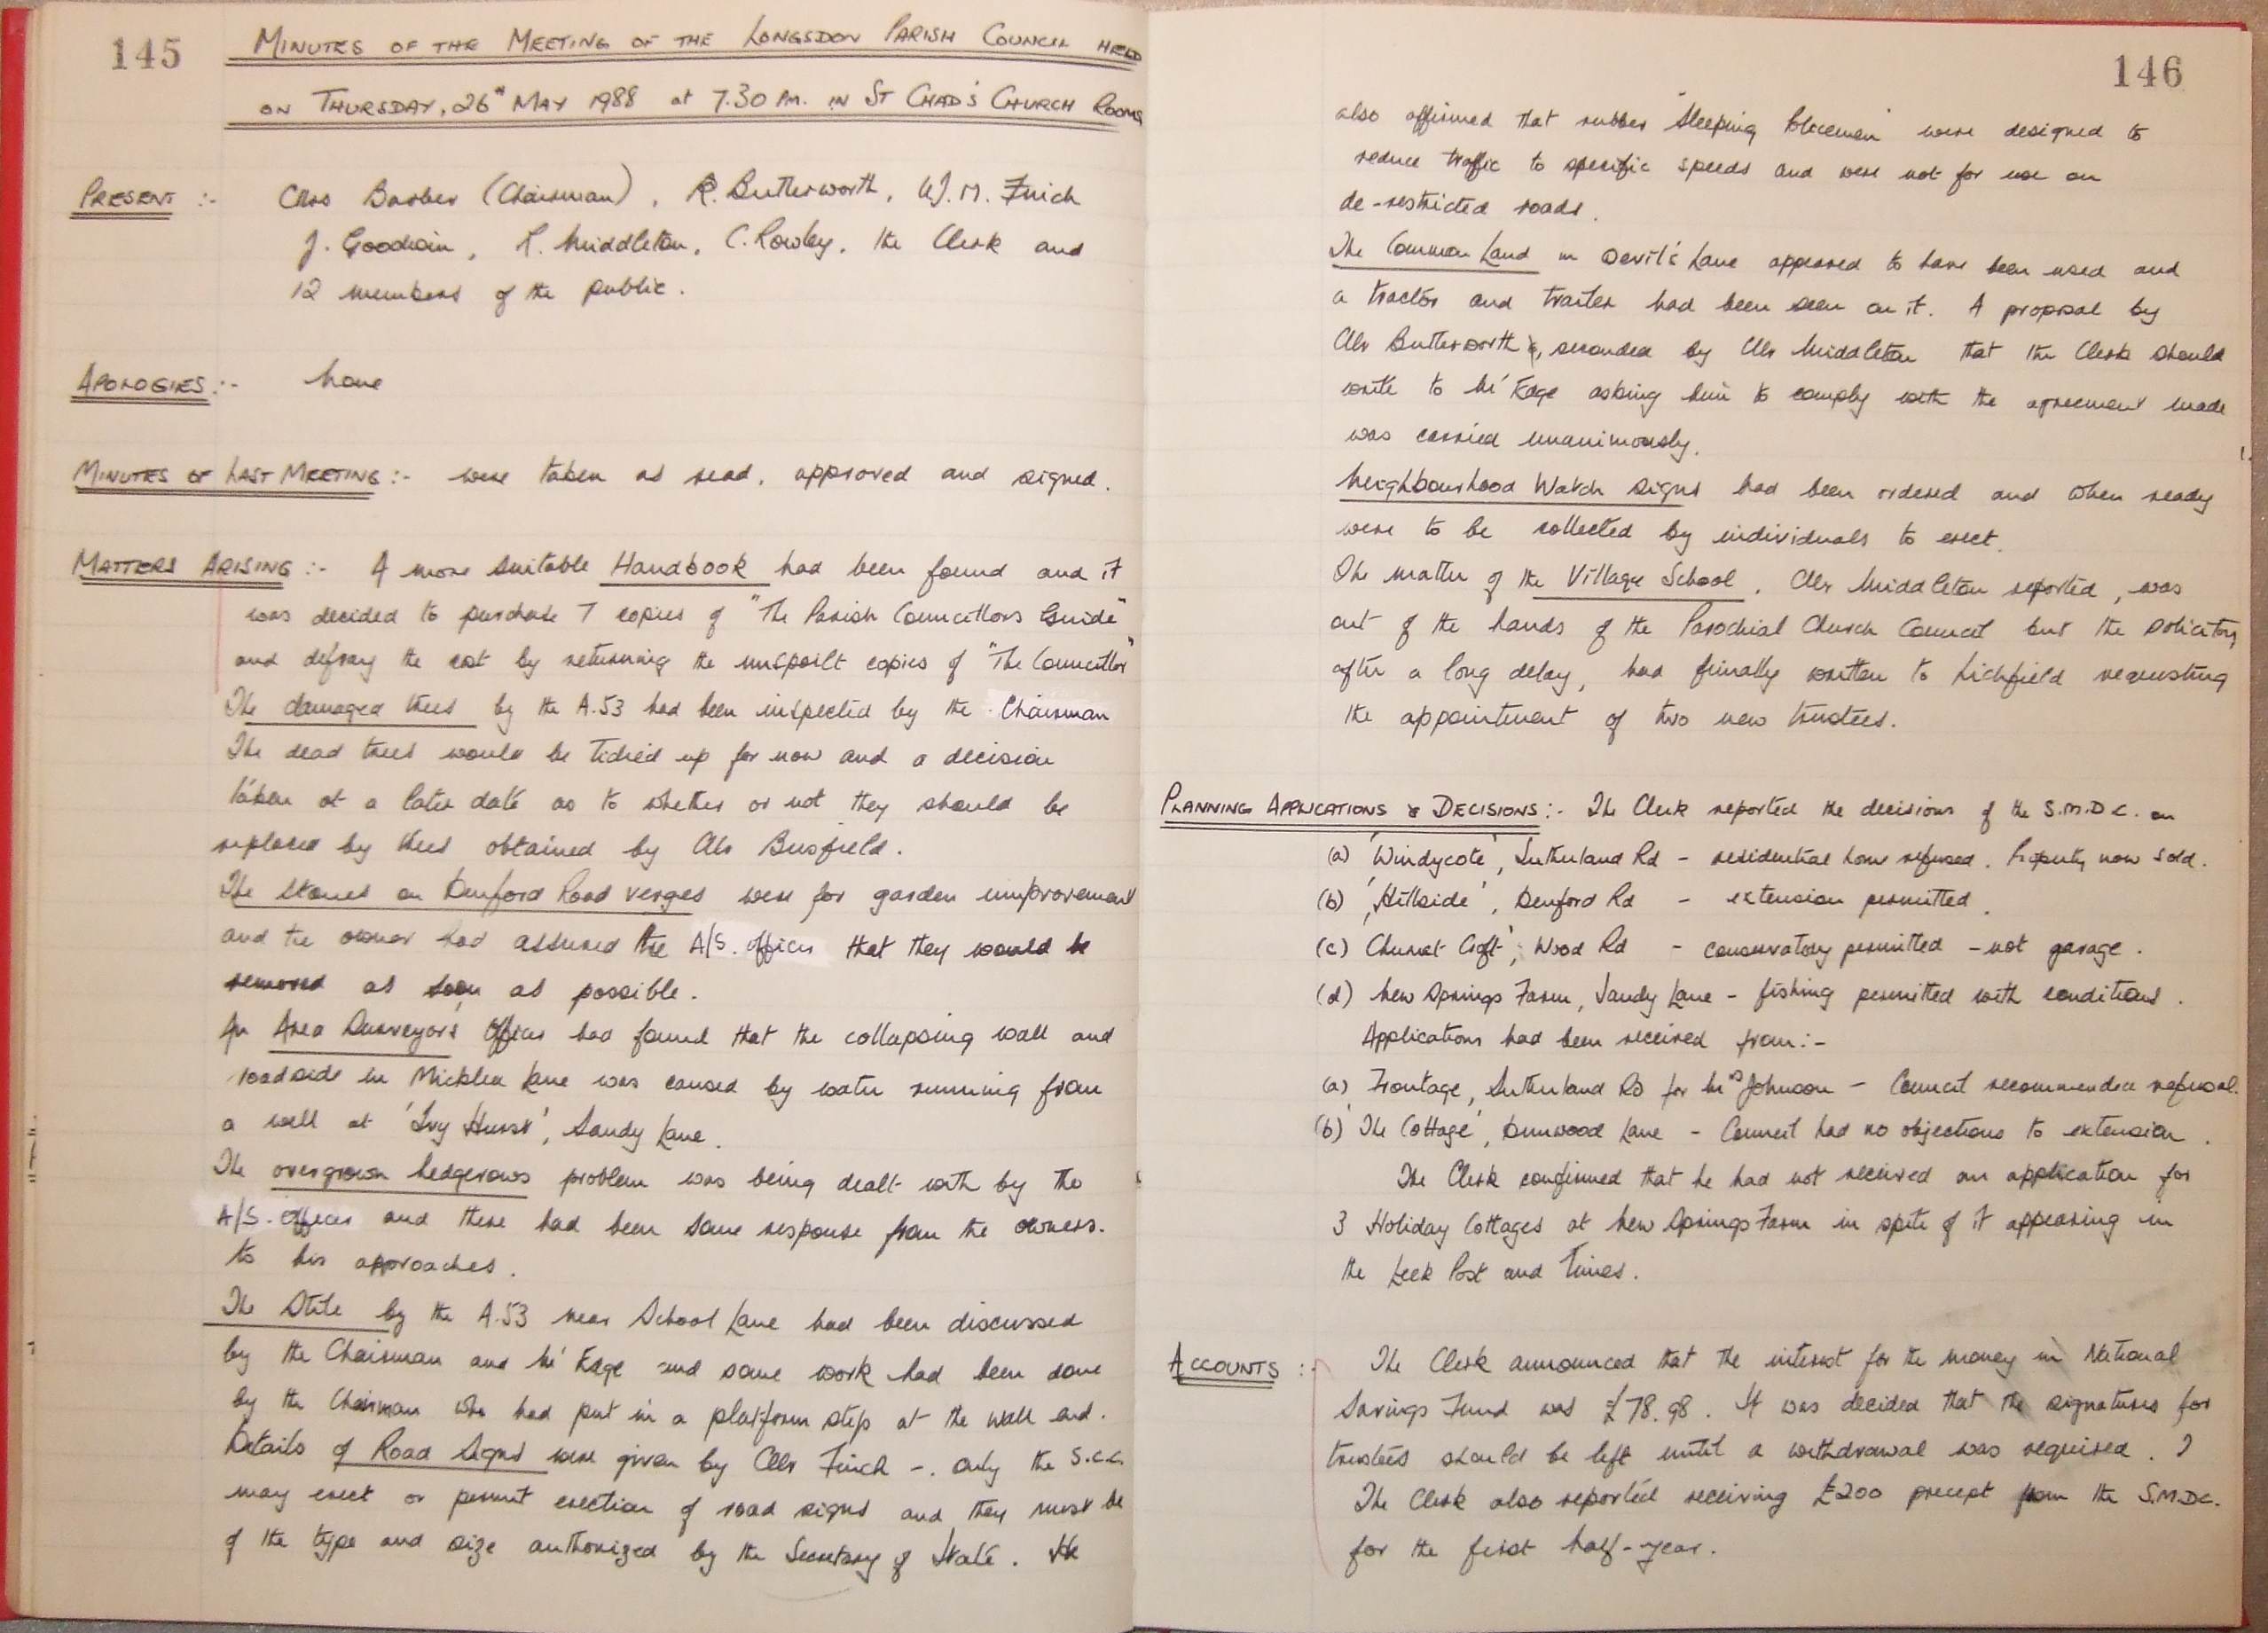 145
MINUTES OF THE MEETING OF THE LONGSDON PARISH COUNCIL HELD
ON THURSDAY, 26th MAY 1988 at 7.30 PM. IN ST CHAD'S CHURCH ROOMS
PRESENT :- Cllrs Barber (Chairman), R. Butterworth, W.J.M. Finch
J. Goodwin, R. Middleton, C. Rowley, the Clerk and
12 members of the public.
APOLOGIES :- None
MINUTES OF LAST MEETING :- were taken as read, approved and signed.
MATTERS ARISING :- A more suitable Handbook had been found and it
was decided to purchase 7 copies of "The Parish Councillors Guide"
and defray the cost by returning the unspoilt copies of "The Councillor"
The damaged trees by the A.53 had been inspected by the Chairman
The dead trees would be tidied up for now and a decision
taken at a later date as to whether or not they should be
replaced by trees obtained by Cllr Busfield.
The Stones on Denford Road verges were for garden improvement
and the owner had assured the A/S. Officer that they would be
removed as soon as possible.
An Area Surveyors Officer had found that the collapsing wall and
roadside in Micklea Lane was caused by water running from
a well at 'Ivy Hurst', Sandy Lane.
The overgrown hedgerows problem was being dealt with by the
A/S. Officer and there had been some response from the owners.
to his approaches.
The Stile by the A.53 near School Lane had been discussed
by the Chairman and Mr Edge and some work had been done
by the Chairman who had put in a platform step at the wall end.
Details of Road Signs were given by Cllr Finch -. Only the S.C.C.
may erect or permit erection of road signs and they must be
of the type and size authorized by the Secretary of State. He
146
also affirmed that rubber "Sleeping Policemen" were designed to
reduce traffic to specific speeds and were not for use on
de-restricted roads.
The Common Land in Devil's Lane appeared to have been used and
a tractor and trailer had been seen on it. A proposal by
Cllr Butterworth, seconded by Cllr Middleton that the Clerk should
write to Mr Edge asking him to comply with the agreement made
was carried unanimously.
Neighbourhood Watch Signs had been ordered and when ready
were to be collected by individuals to erect.
The matter of the Village School, Cllr Middleton reported, was
out of the hands of the Parochial Church Council but the Solicitors,
after a long delay, had finally written to Lichfield requesting
the appointment of two new trustees.
PLANNING APPLICATIONS & DECISIONS :- The Clerk reported the decisions of the S.M.D.C. on
(a) 'Windycote', Sutherland Rd - residential home refused. Property now sold.
(b) 'Hillside', Denford Rd - extension permitted.
(c) Churnet Croft', Wood Rd - conservatory permitted - not garage.
(d) New Springs Farm, Sandy Lane - fishing permitted with conditions.
Applications had been received from :-
(a) Frontage, Sutherland Rd for Mrs Johnson - Council recommended refusal.
(b) 'The Cottage', Dunwood Lane - Council had no objections to extension.
The Clerk confirmed that he had not received an application for
3 Holiday Cottages at New Springs Farm in spite of it appearing in
the Leek Post and Times.
ACCOUNTS :- The Clerk announced that the interest for the money in National
Savings Fund was £78.98. It was decided that the signatures for
trustees should be left until a withdrawal was required.
The Clerk also reported receiving £200 precept from the S.M.D.C.
for the first half-year.